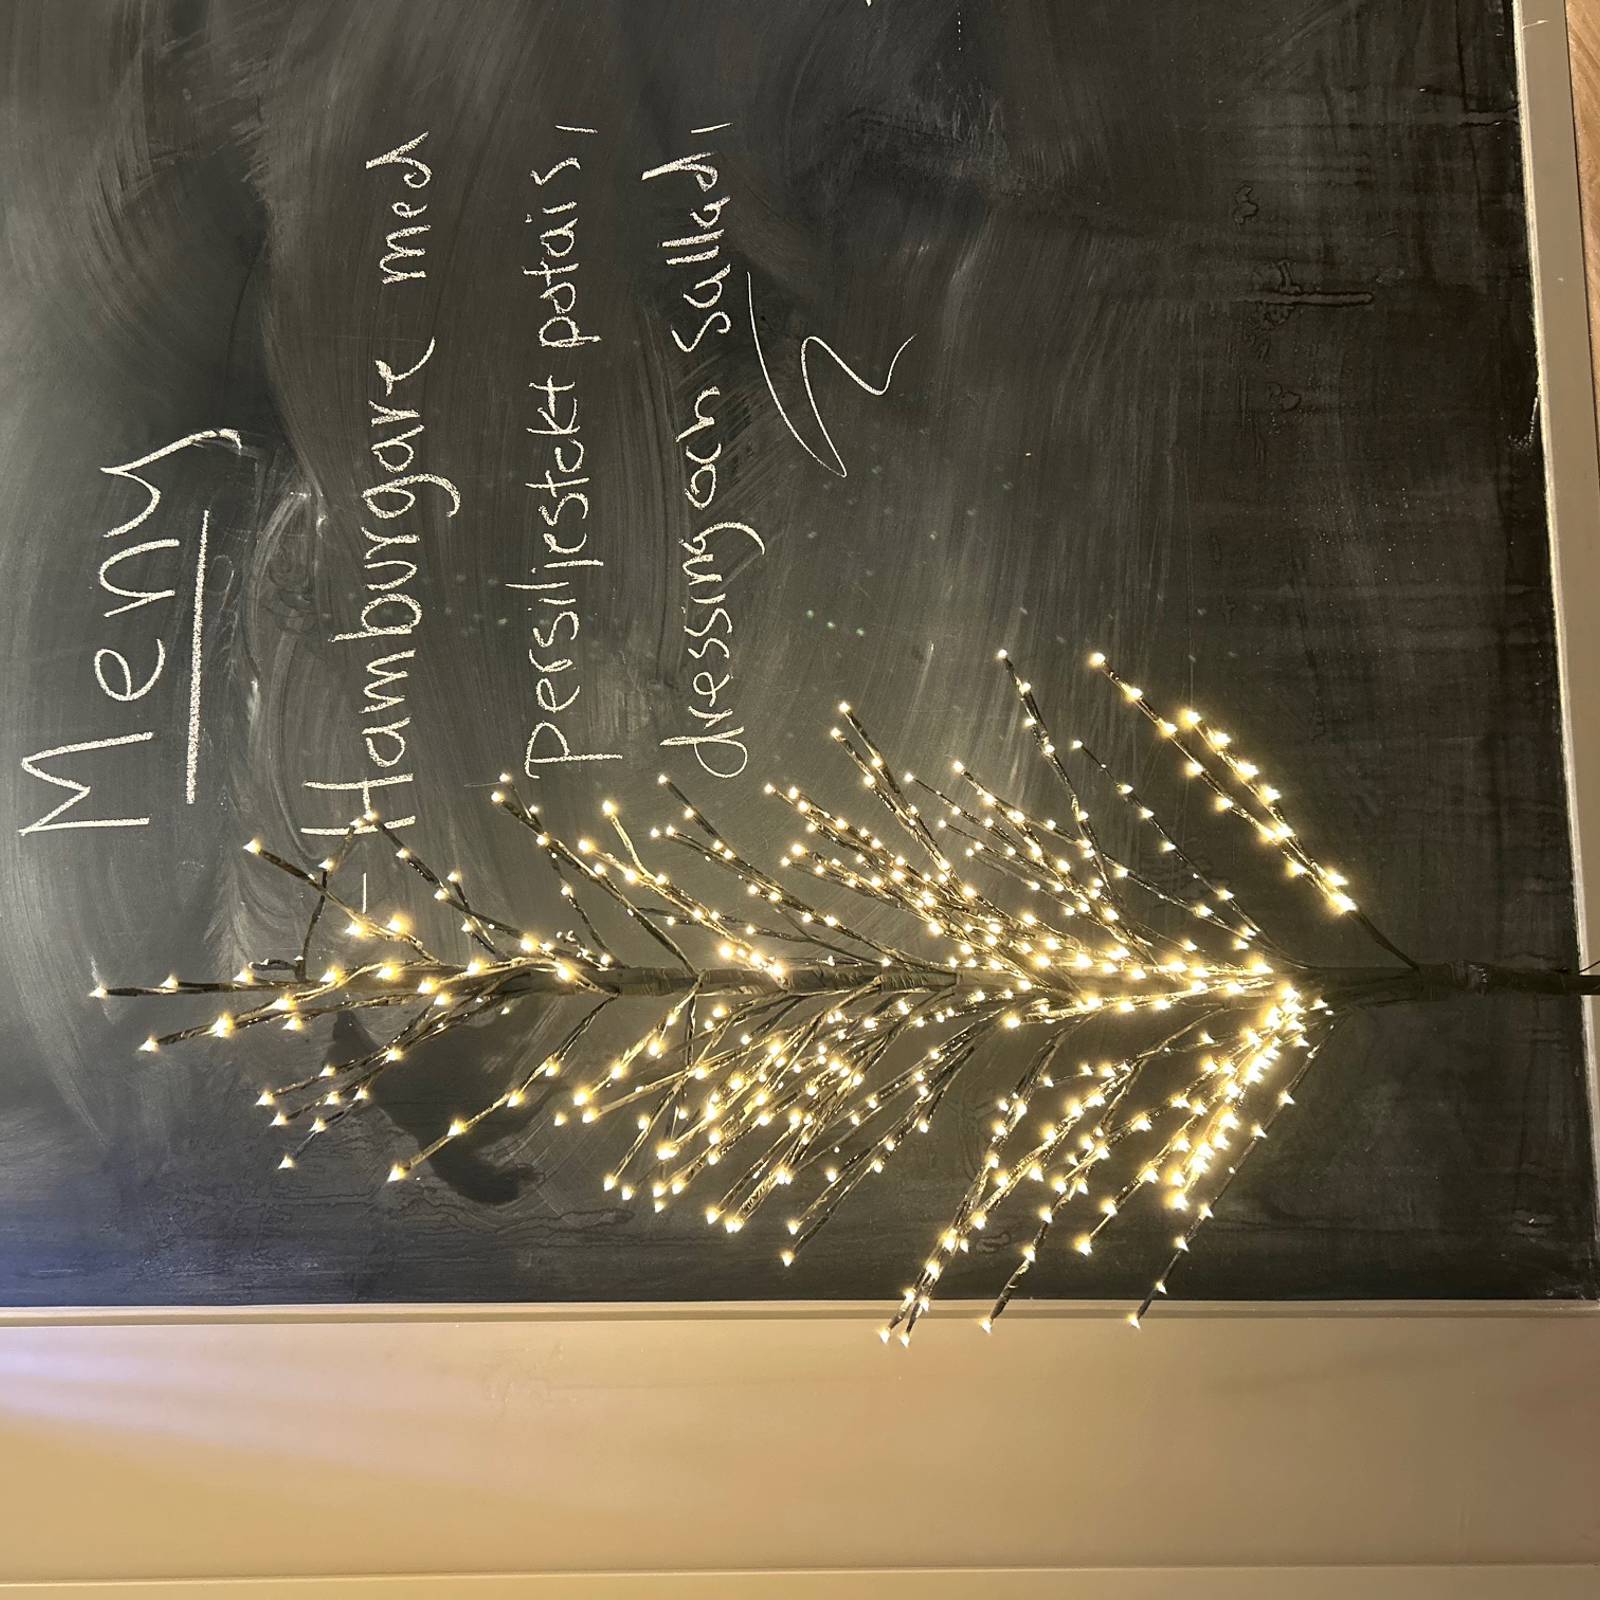 Meny
- Hamburgare med
persiljestekt potais,
dressing och Sallad,